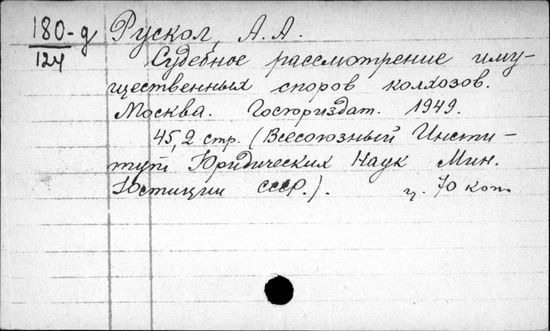 180-д Рускол, А. А.
124 Судебное рассмотрение иму-
щественных споров колхозов.
Москва. Госюриздат. 1949.
45, 2 стр. (Всесоюзный Инсти-
тут Юридических Наук Мин.
Юстиции СССР.). ц. 70 коп.